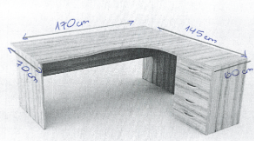 170cm
145cm
70cm
60cm